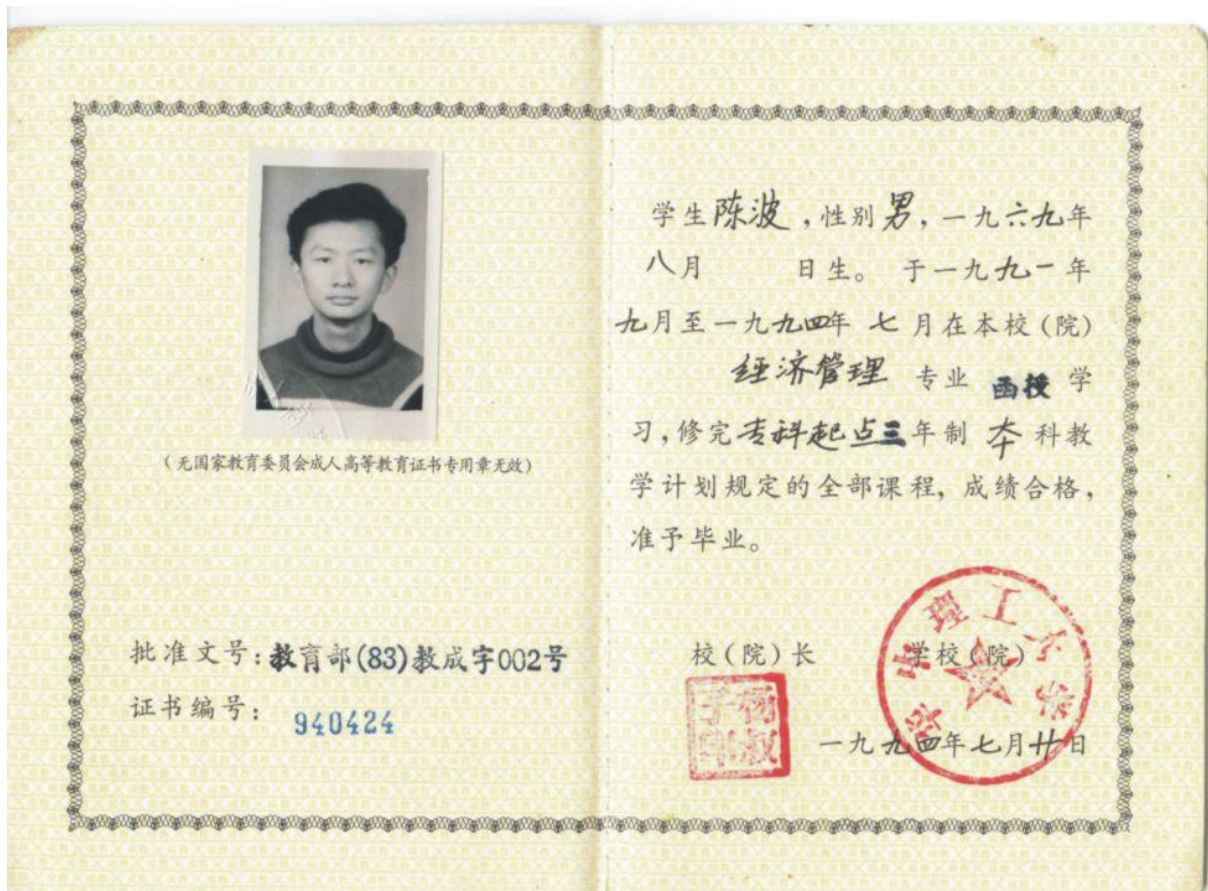 (无国家教育委员会成人高等教育证书专用章无效)
批准文号:教育部(83)教成字002号
证书编号: 940424
学生陈波,性别男,一九六九年
八月 日生。于一九九一年
九月至一九九四年七月在本校(院)
经济管理 专业 函授 学
习,修完专科起点三年制 本 科教
学计划规定的全部课程,成绩合格,
准予毕业。
校(院)长 学校(院)
杨叔子印
华中理工大学
一九九四年七月廿日